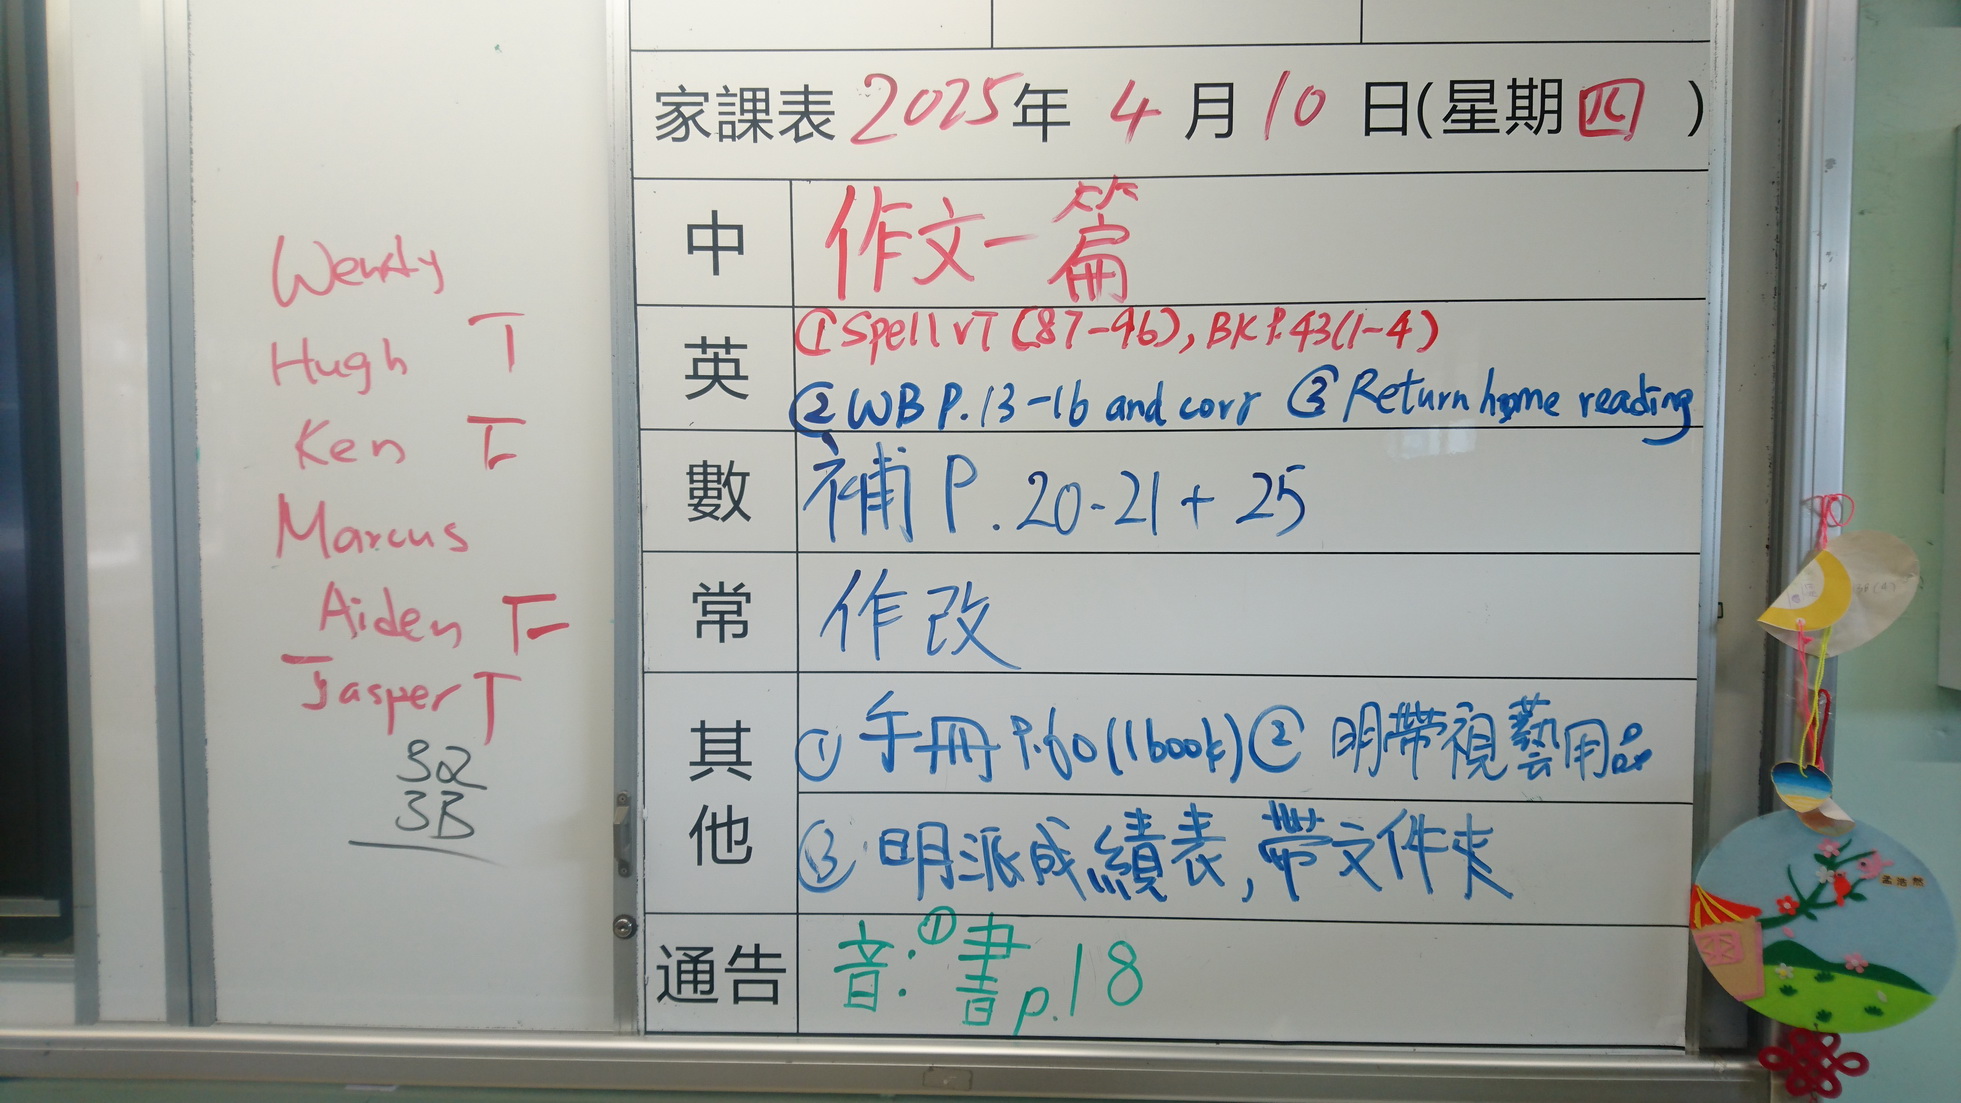 Wendy
Hugh T
Ken F
Marcus
Aiden F
Jasper T
3Q
3B
家課表 2025年 4 月 10 日(星期四 )
中 作文一篇
英 ①Spell VT (87-96), BK P.43(1-4)
②WB P.13-16 and corr ③ Return home reading
數 補 P. 20-21 + 25
常 作改
其他 ① 手冊 P.60 (1 book) ② 明帶視藝用品
③ 明派成績表,帶文件夾
通告 音:①書p.18
孟浩然